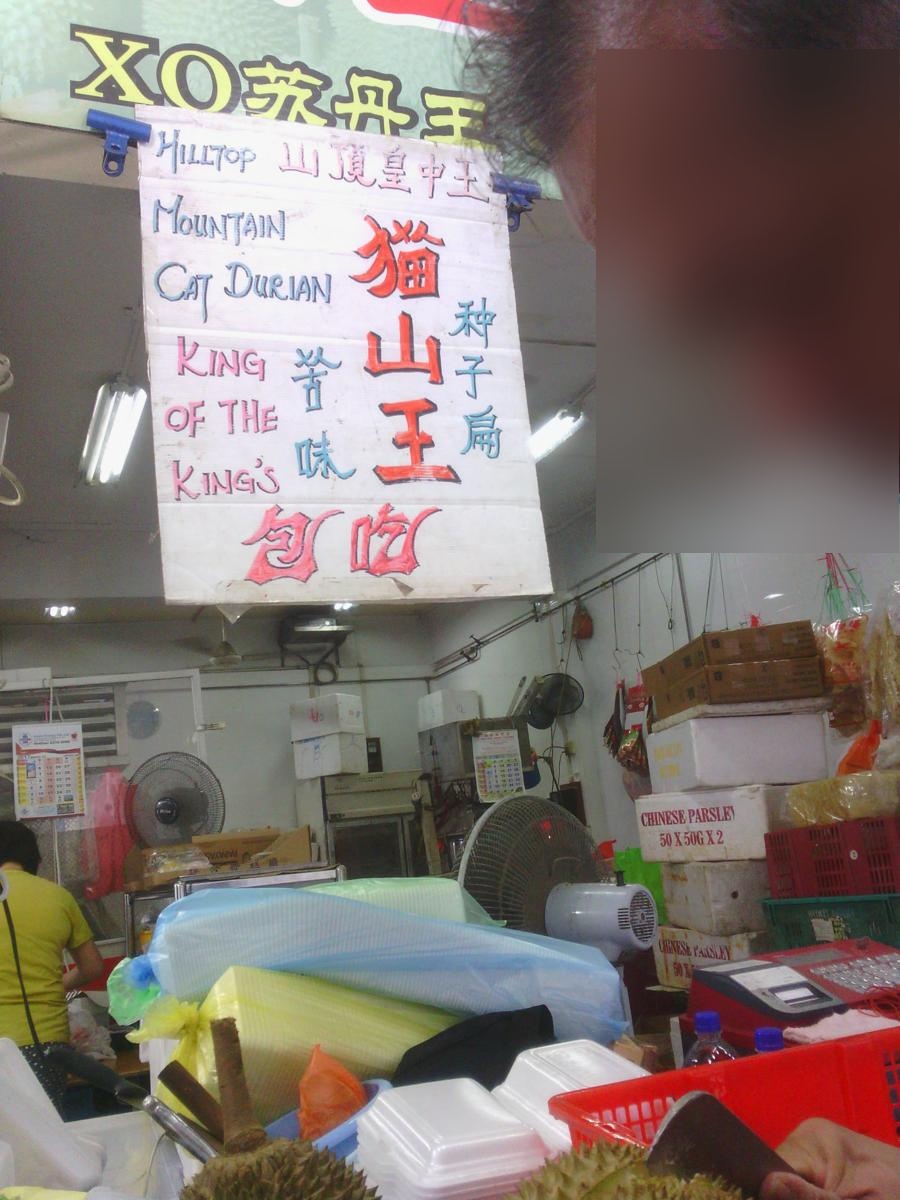 XO苏丹王
HILLTOP 山頂皇中王
MOUNTAIN
CAT DURIAN
KING
OF THE
KING'S
猫山王
种子扁
苦味
包吃
CHINESE PARSLEY
50 X 50G X 2
CHINESE PARSLEY
50 X